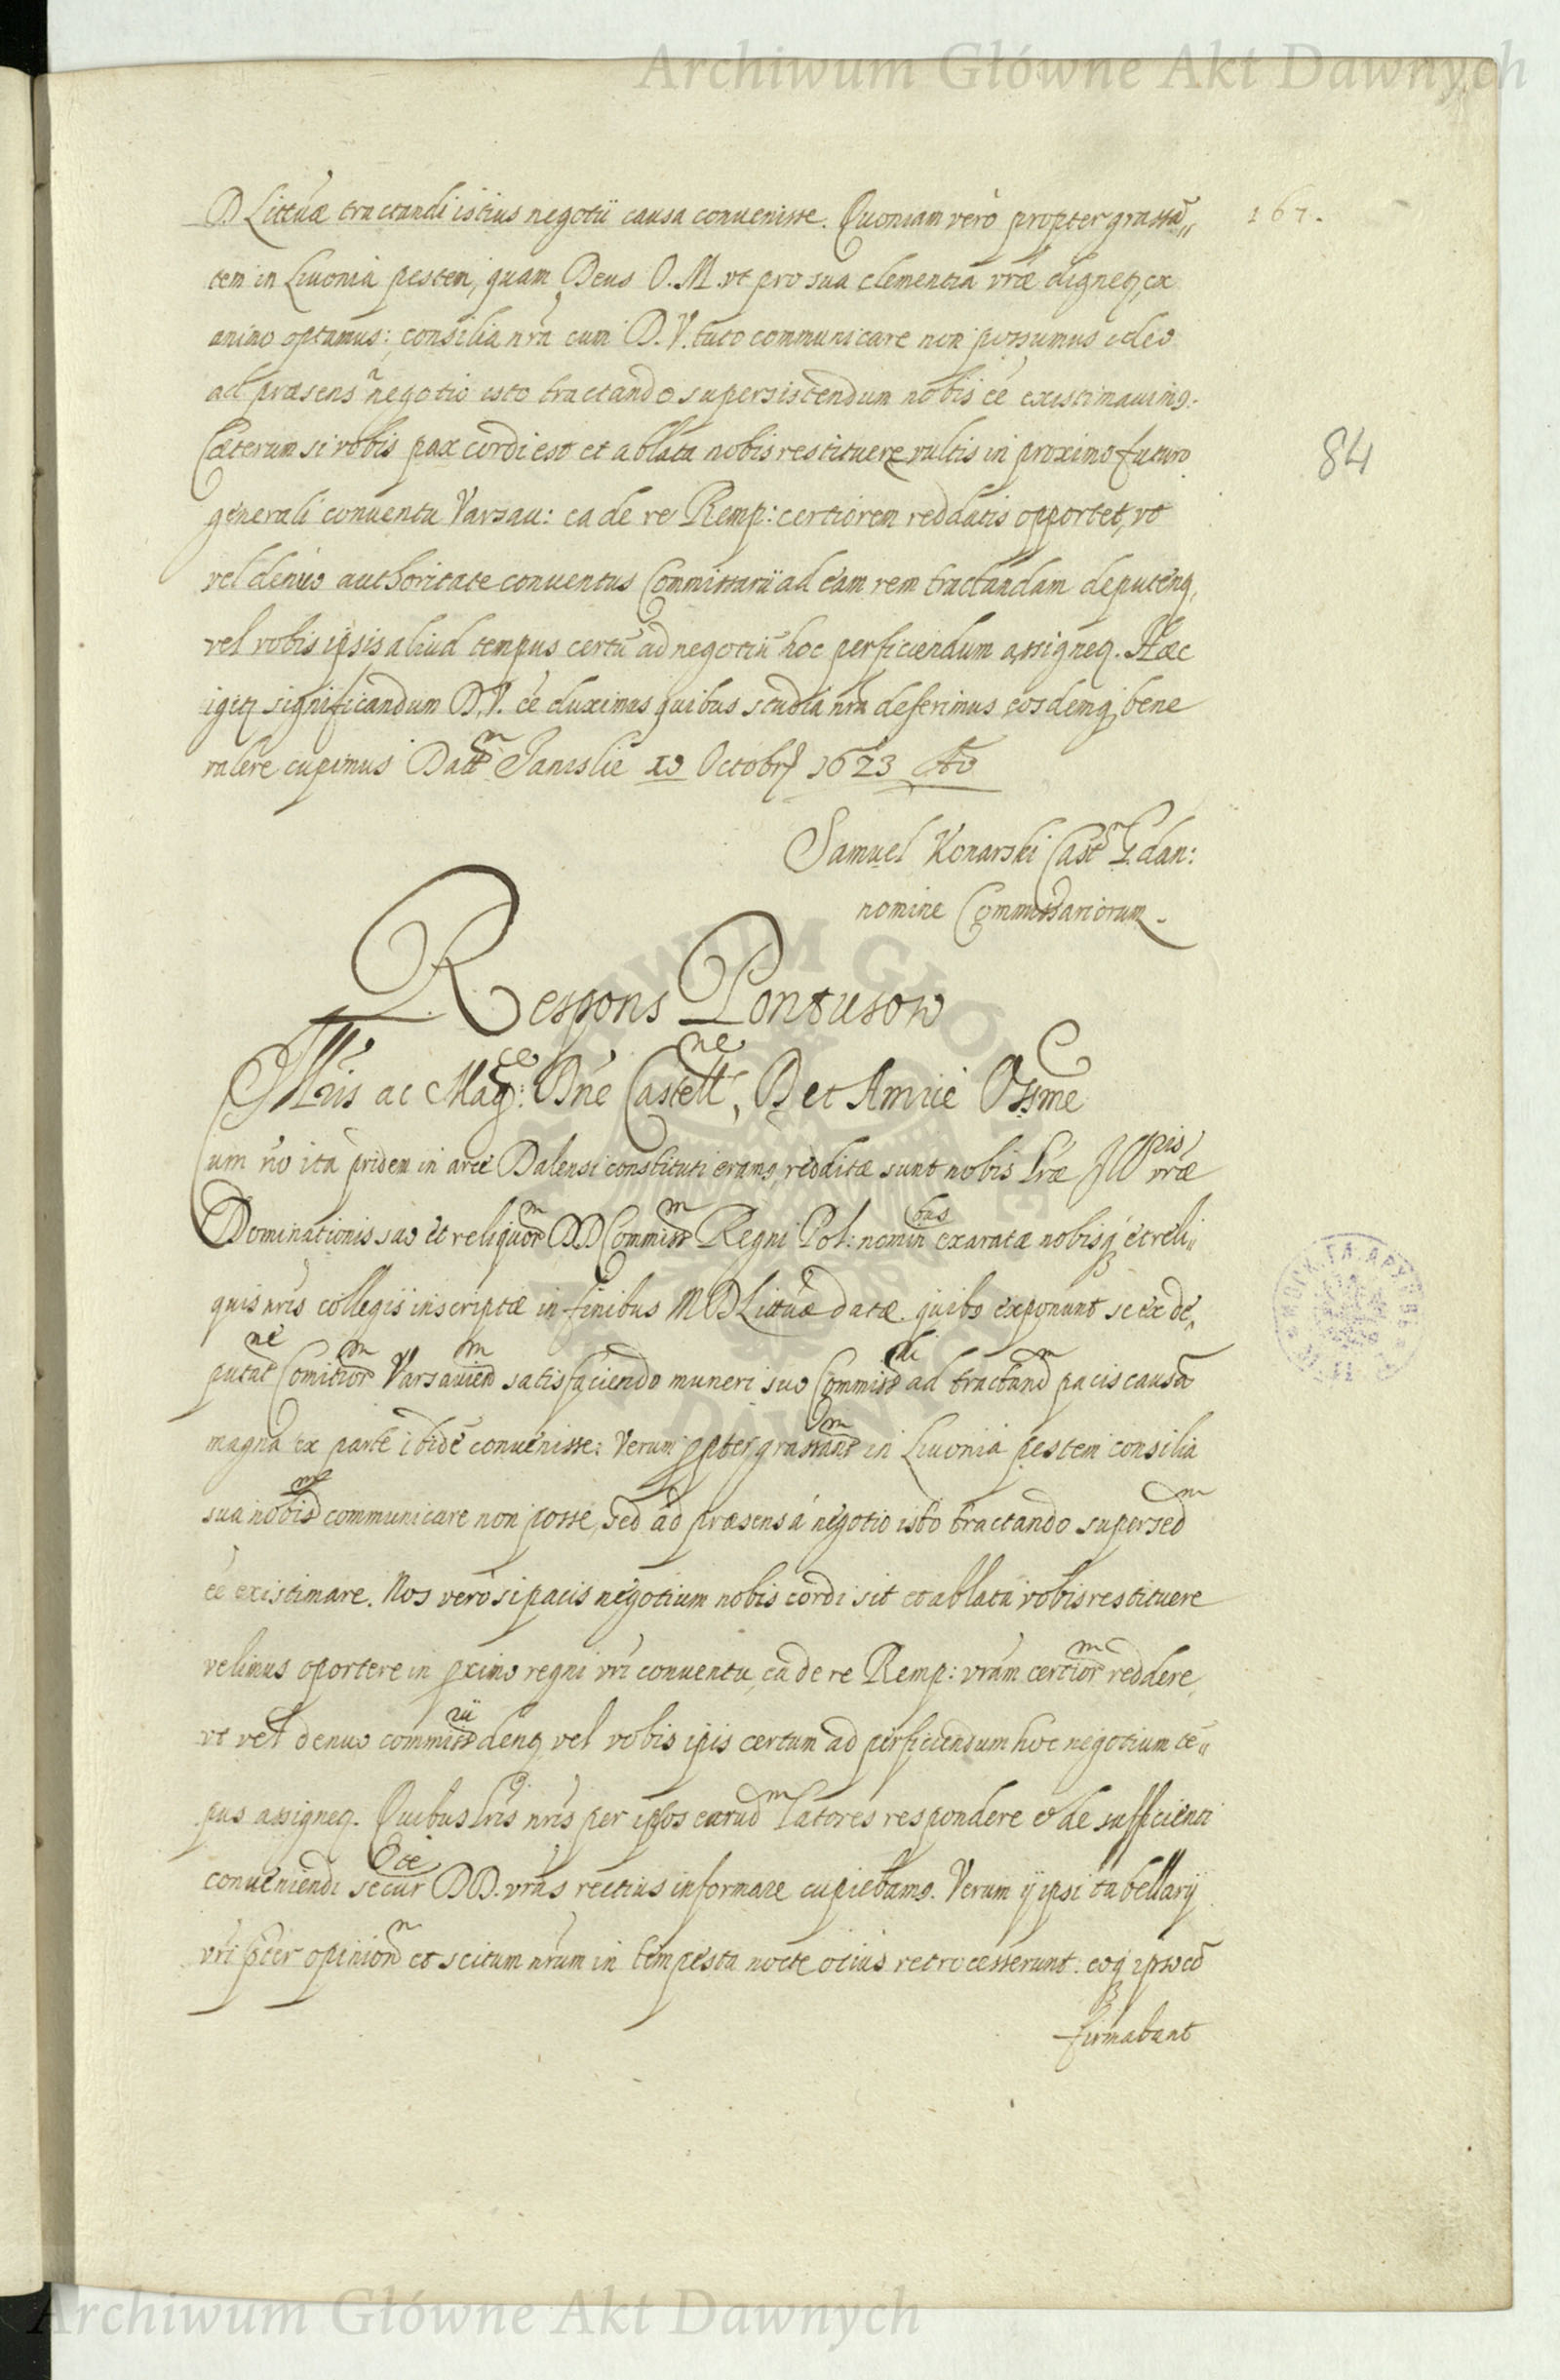 Archiwum Główne Akt Dawnych
D. Littuæ tractandi istius negotii causa convenisse. Quoniam verò propter grassã„
167.
tem in Livonia pestem, quam Deus O. M. vt pro sua clementia vræ digneꝫ, ex
animo optamus: consilia nrã cum D. V. tuto communicare non possumus ideo
ad præsens negotio isto tractando supersistendum nobis eē existimavimꝰ.
Cæterum si vobis pax cordi est et ablata nobis restituere vultis in proximo futuro
84
generali conventu Varsau: ea de re Remp: certiorem reddatis opportet, vt
vel denuo authoritate conventus Commissarii ad eam rem tractandam deputenꝫ,
vel vobis ipsis aliud tempus certū ad negotiū hoc perficiendum assigneꝫ. Hæc
igiꝫ significandum D. V. eē duximus quibus studia nrã deferimus eosdemqꝫ bene
valere cupimus Datt^m Janislie 10 Octobrꝭ 1623 Ao
Samuel Konarski Cast^n Gdan:
nomine Commissariorum.
Respons Pontusow
Illris ac Mag^ce: Dne Castell^ne, D et Amice Obssme
Cum nō ita pridem in arce Dalensi constituti eramꝰ, redditæ sunt nobis lræ Ill^pis vræ
Dominationis suo et reliquor^m DD Commiss^m Regni Pol: nomin^bus exaratæ nobisqꝫ et reli„
quis nris collegis inscriptæ in finibus M D Littuæ datæ. quibꝰ exponunt se ex de„
putat^ne Comitior^m Varsavien^m satisfaciendo muneri suo Commiss^di ad tractand^m pacis causã
magna ex parte ibidē convenisse: Verum ꝓpter grassant^m in Livonia pestem consilia
sua nobis^m communicare non posse, sed ad præsens á negotio isto tractando supersed^m
eē existimare. Nos vero si pacis negotium nobis cordi sit et ablata vobis restituere
velimus oportere in ꝓximo regni vri conventu, ea de re Remp: vram certior^m reddere,
vt vel denuo commiss^rii denꝫ vel vobis ipis certum ad perficiendum hoc negotium tē„
pus assigneꝫ. Quibus lris nris per ipsos earud^m latores respondere et de sufficienti
conveniendi secur^te DD. vras rectius informare cupiebamꝰ. Verum ij ipsi tabellarij
vri ꝑter opinion^m et scitum nrum in tempesta nocte ocius retrocesserunt. eoqꝫ ipso cō
firmabant
Archiwum Główne Akt Dawnych